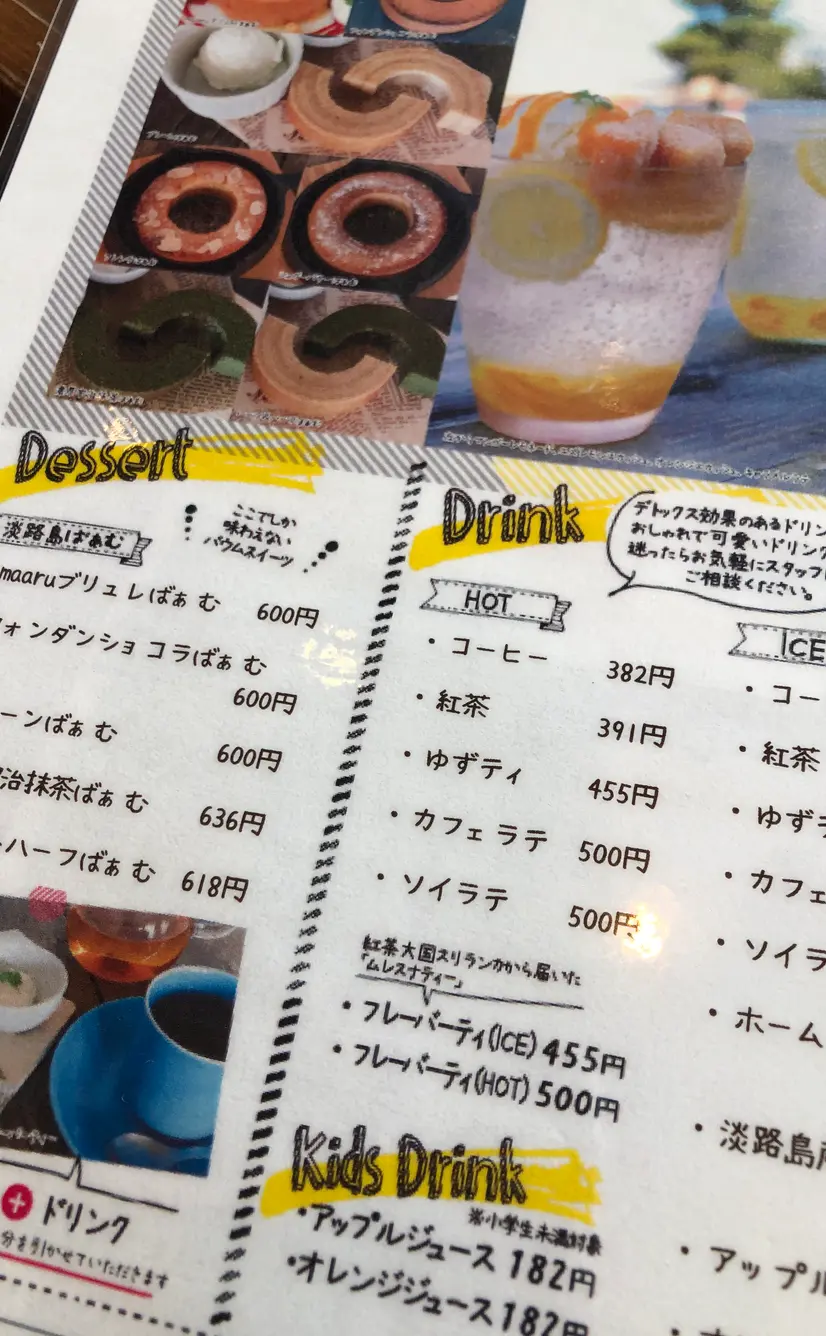 プレーンばぁむ
Dessert
淡路島ばぁむ
ここでしか
味わえない
バウムスイーツ
maaruブリュレばぁむ 600円
ォンダンショコラばぁむ
600円
ーンばぁむ 600円
治抹茶ばぁむ 636円
ハーフばぁむ 618円
+ ドリンク
分を引かせていただきます
Drink
デトックス効果のあるドリン
おしゃれで可愛いドリンク
迷ったらお気軽にスタッフ
ご相談ください。
HOT
・コーヒー 382円
・紅茶 391円
・ゆずティ 455円
・カフェラテ 500円
・ソイラテ 500円
紅茶大国スリランカから届いた
「ムレスナティー」
・フレーバーティ(ICE) 455円
・フレーバーティ(HOT) 500円
Kids Drink
※小学生未満対象
・アップルジュース 182円
・オレンジジュース 182円
ICE
・コー
・紅茶
・ゆずテ
・カフェ
・ソイラ
・ホーム
・淡路島
・アップル